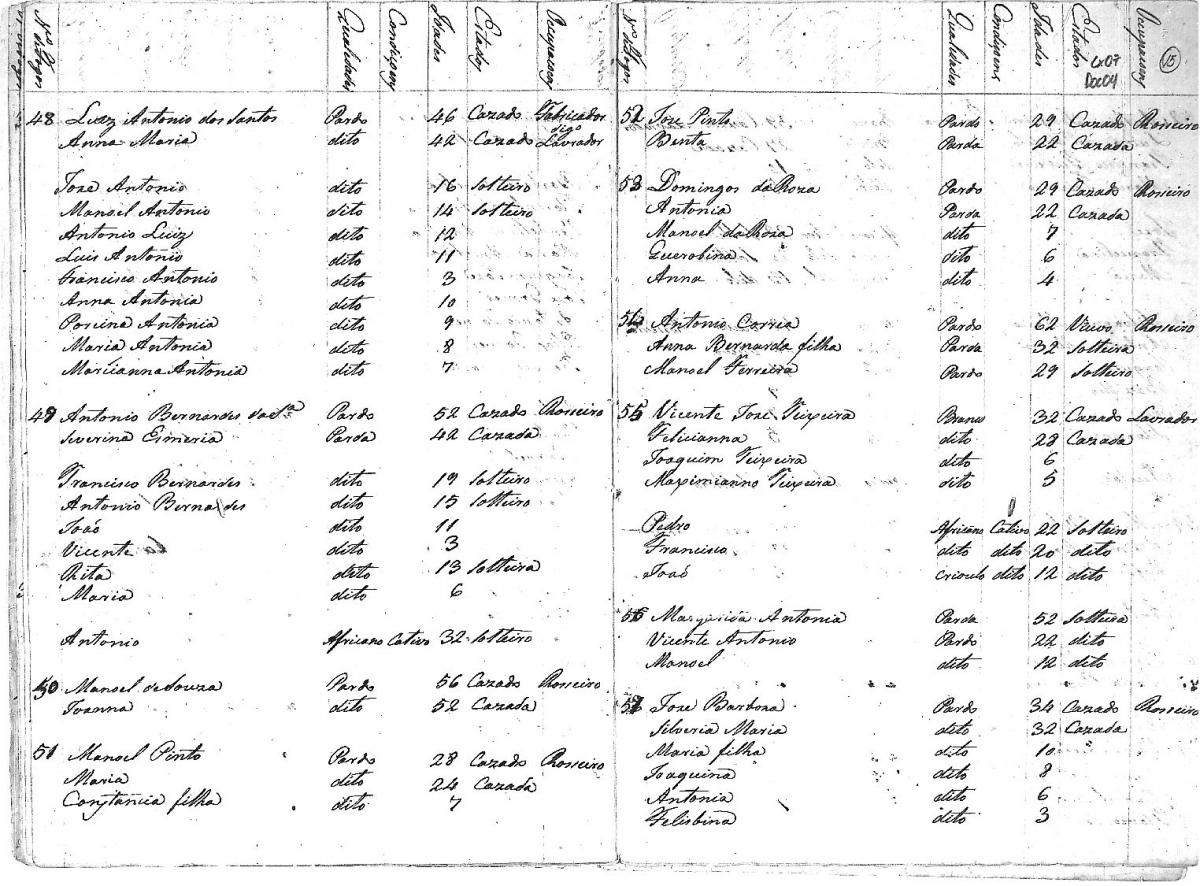 Nos de Fogos Qualidades Condiçoens Idades Estados Occupaçoens
48 Luiz Antonio dos Santos Pardo 46 Cazado Fabricador
digo
Anna Maria dito 42 Cazado Lavrador
Joze Antonio dito 16 Solteiro
Manoel Antonio dito 14 Solteiro
Antonio Luiz dito 12
Luis Antonio dito 11
Francisco Antonio dito 3
Anna Antonia dito 10
Porcina Antonia dito 9
Maria Antonia dito 8
Mariianna Antonia dito 7
49 Antonio Bernardes da Sa Pardo 52 Cazado Rosseiro
Severina Esmeria Parda 42 Cazada
Francisco Bernardes dito 19 Solteiro
Antonio Bernardes dito 15 Solteiro
Joaó dito 11
Vicente dito 3
Rita dito 13 Solteira
Maria dito 6
Antonio Africano Cativo 32 Solteiro
50 Manoel de Souza Pardo 56 Cazado Rosseiro
Joanna dito 52 Cazada
51 Manoel Pinto Pardo 28 Cazado Rosseiro
Maria dito 24 Cazada
Constancia filha dito 7
Nos de Fogos Qualidades Condiçoens Idades Estados Occupaçoens 15
Cx07
Doc04
52 Joze Pinto Pardo 29 Cazado Rosseiro
Benta Parda 22 Cazada
53 Domingos da Roza Pardo 29 Cazado Rosseiro
Antonia Parda 22 Cazada
Manoel da Roza dito 7
Querobina dito 6
Anna dito 4
54 Antonio Correa Pardo 62 Viuvo Rosseiro
Anna Bernarda filha Parda 32 Solteira
Manoel Ferreira Pardo 29 Solteiro
55 Vicente Joze Teixeira Branco 32 Cazado Lavrador
Felicianna dito 28 Cazada
Joaquim Teixeira dito 6
Maximianno Teixeira dito 5
Pedro Africano Cativo 22 Solteiro
Francisco dito dito 20 dito
Joaó crioulo dito 12 dito
56 Margarida Antonia Parda 52 Solteira
Vicente Antonio Pardo 22 dito
Manoel dito 12 dito
57 Joze Barboza Pardo 34 Cazado Rosseiro
Silveria Maria dito 32 Cazada
Maria filha dito 10
Joaquina dito 8
Antonia dito 6
Felisbina dito 3